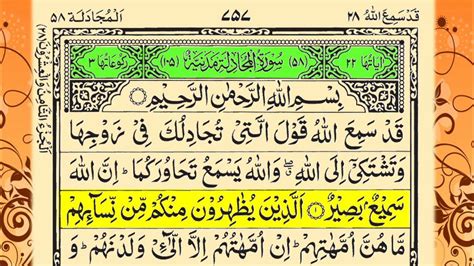 قَدْ سَمِعَ اللهُ ٢٨
٧٥٧
اَلْمُجَادَلَة ٥٨
اٰيَاتُهَا ٢٢
(٥٨) سُوْرَةُ الْمُجَادَلَةِ مَدَنِيَّةٌ (١٠٥)
رُكُوْعَاتُهَا ٣
بِسْمِ اللهِ الرَّحْمٰنِ الرَّحِيْمِ
قَدْ سَمِعَ اللهُ قَوْلَ الَّتِيْ تُجَادِلُكَ فِيْ زَوْجِهَا
وَتَشْتَكِيْٓ اِلَى اللهِ ۖ وَاللهُ يَسْمَعُ تَحَاوُرَكُمَا ؕ اِنَّ اللهَ
سَمِيْعٌۢ بَصِيْرٌ ١ اَلَّذِيْنَ يُظٰهِرُوْنَ مِنْكُمْ مِّنْ نِّسَآئِهِمْ
مَّا هُنَّ اُمَّهٰتِهِمْ ؕ اِنْ اُمَّهٰتُهُمْ اِلَّا الّٰٓـِٔيْ وَلَدْنَهُمْ ؕ وَ
اَلْجُزْءُ الثَّامِنُ وَالْعِشْرُوْنَ (٢٨)